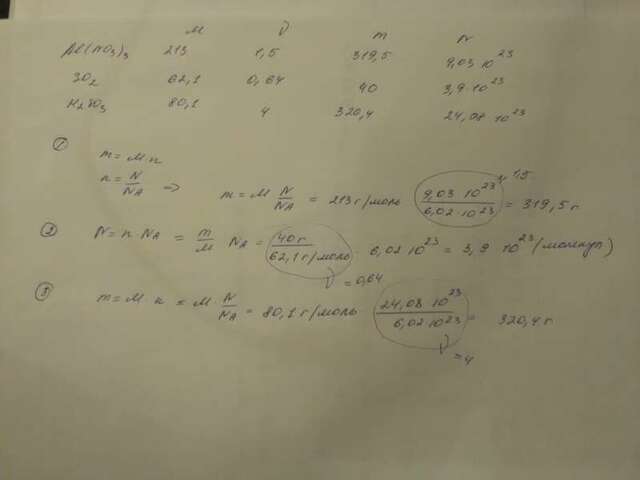 M ν m N
Al(NO3)3 213 1,5 319,5 9,03·10^23
SO2 62,1 0,64 40 3,9·10^23
H2SO3 80,1 4 320,4 24,08·10^23
① m = M·n
n = N/NA => m = M N/NA = 213 г/моль 9,03·10^23/6,02·10^23 = 319,5 г
ν 1,5
② N = n·NA = m/M NA = 40 г/62,1 г/моль · 6,02·10^23 = 3,9·10^23 (молекул)
ν = 0,64
③ m = M·n = M·N/NA = 80,1 г/моль 24,08·10^23/6,02·10^23 = 320,4 г
ν = 4